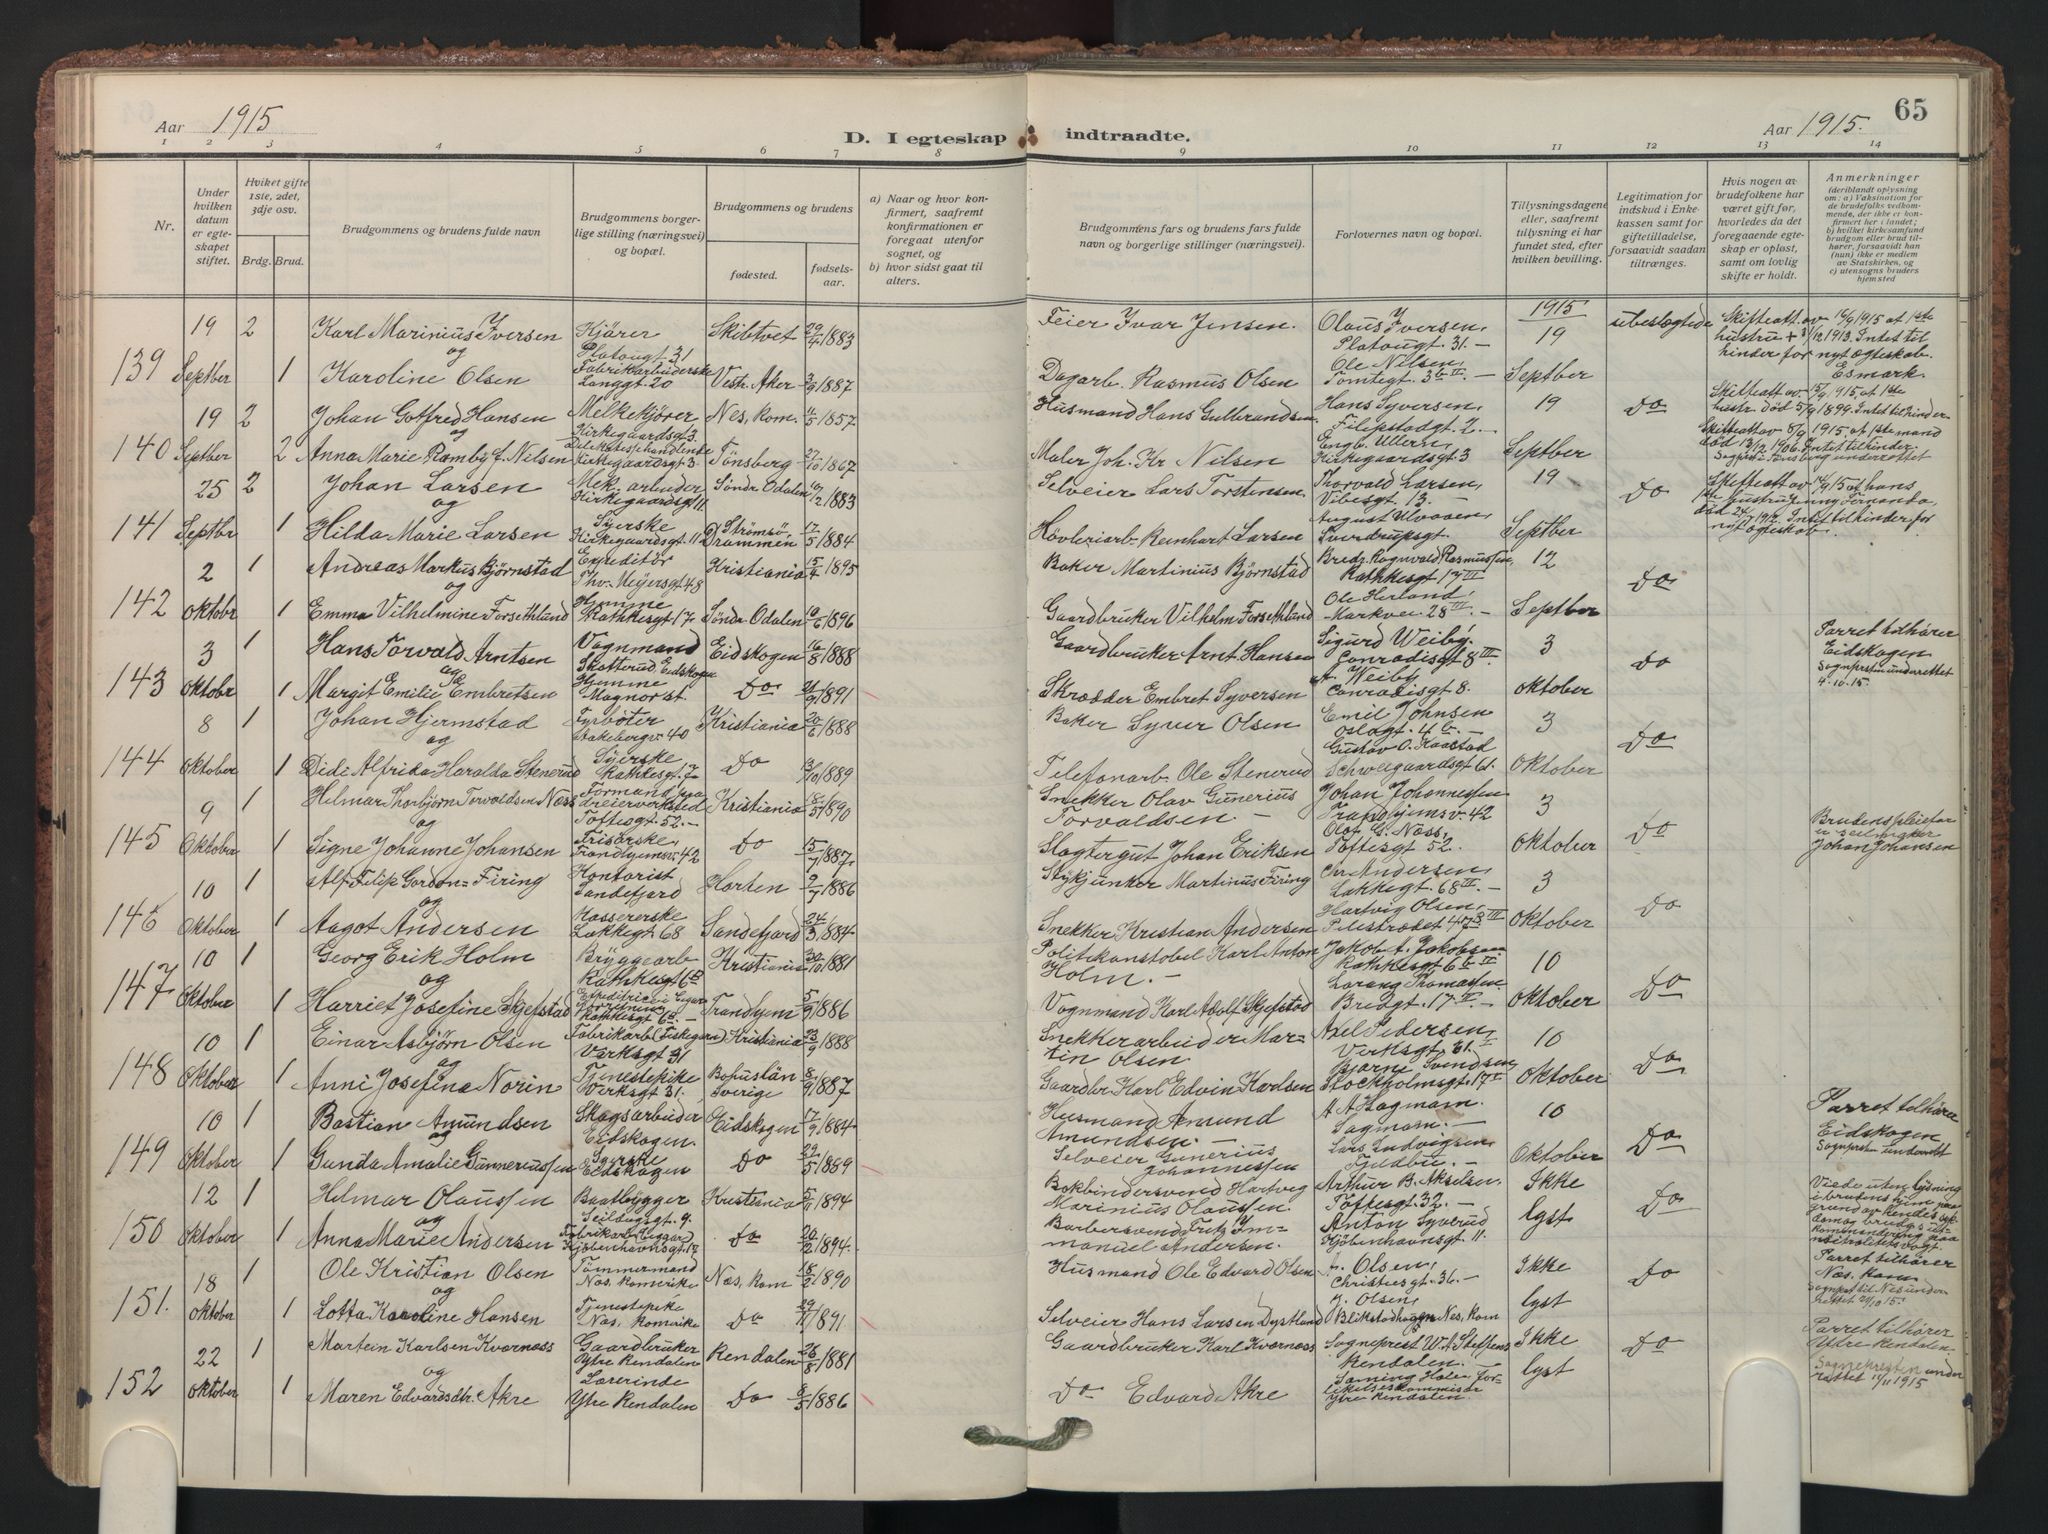 65
Aar 1915
D. I egteskap indtraadte.
Aar 1915.
1 2 3 4 5 6 7 8 9 10 11 12 13 14
Nr.
Under hvilken datum er egteskapet stiftet.
Hviket gifte 1ste, 2det, 3dje osv.
Brdg. Brud.
Brudgommens og brudens fulde navn
Brudgommens borgerlige stilling (næringsvei) og bopæl.
Brudgommens og brudens
fødested.
fødselsaar.
a) Naar og hvor konfirmert, saafremt konfirmationen er foregaat utenfor sognet, og
b) hvor sidst gaat til alters.
Brudgommens fars og brudens fars fulde navn og borgerlige stillinger (næringsvei).
Forlovernes navn og bopæl.
Tillysningsdagene eller, saafremt tillysning ei har fundet sted, efter hvilken bevilling.
Legitimation for indskud i Enkekassen samt for giftetilladelse, forsaavidt saadan tiltrænges.
Hvis nogen av brudefolkene har været gift før, hvorledes da det foregaaende egteskap er opløst, samt om lovlig skifte er holdt.
Anmerkninger (deriblandt oplysning om: a) Vaksination for de brudefolks vedkommende, der ikke er konfirmert her i landet; b) hvilket kirkesamfund brudgom eller brud tilhører, forsaavidt han (hun) ikke er medlem av Statskirken, og c) utensogns bruders hjemsted
1915
139 19 Septber 2 Karl Marinius Iversen Kjører Platougt 31 Skibtvet 29/4 1883 Feier Ivar Jensen. Olaus Iversen, Platougt. 31.- 19 ubeslegtede Skifteatt av 16/9 1915 at 1ste hustru + 3/12 1913. Intet til hinder for nyt ægteskab. Esmark.
og
1 Karoline Olsen Fabrikarbeiderske Langgt 20 Vestr. Aker 1887 Dagarb. Rasmus Olsen Ole Nilsen, Tomtegt. 3b II.- Septber
140 19 Septber 2 Johan Gotfred Hansen Melkekjører Kirkegaardsgt 3. Nes, Rom. 11/5 1857 Husmand Hans Gulbrandsen Hans Syversen, Filipstadgt 2.- 19 Do Skifteatt av 15/9 1915, at 1ste hustr. død 5/9 1899. Intet til hinder
og
2 Anna Marie Ramby f. Nilsen Delikatessehandlende Kirkegaardsgt 3 Tönsberg 27/10 1867 Maler Joh. Kr Nilsen Engb. Ullern, Kirkegaardsgt 3 Septber Skifteatt av 8/9 1915. at 1ste mand død 13/12 1906. Intet til hinder. Sognpr. i Tønsberg underrettet
141 25 Septbr 2 Johan Larsen Mek. arbeider Kirkegaardsgt 11 Söndr Odalen 1883 Selveier Lars Torstensen Thorvald Larsen, Vibesgt 13.- 19 Do Skifteatt av 1915 at hans 1ste hustru Jenny Fernanda, død 1912. Intet til hinder for nyt ægteskab.
og
1 Hilda Marie Larsen Syerske Kirkegaardsgt. 11 Strömsö, Drammen 17/5 1884 Høvleriarb. Reinhart Larsen August Ulvaaen, Sverdrupsgt. Septber
142 2 Oktobr 1 Andreas Markus Bjørnstad Expeditör Thv. Meyersgt 48 Kristiania 15/4 1895 Baker Martinius Björnstad Bredg. Ragnvald Rasmussen, Rathkesgt 17 III 12 Do
og
1 Emma Vilhelmine Forsethlund Hjemme Rathkesgt 17 Söndr Odalen 1896 Gaardbruker Vilhelm Forsethlund Ole Herland, Markvei 28 III.- Septber
143 3 Oktobr 1 Hans Torvald Arntsen Vognmand Skotterud, Eidskogen Eidskogen 16/8 1888 Gaardbruker Arnt Hansen Sigurd Weiby. Conradisgt 8 III 3 Do Parret tilhører Eidskogen Sognprstn underrettet 4.10.15.
og
1 Margit Emilie Embretsen Hjemme Magnorst. Do 1891 Skrædder Embret Syversen Weiby Conradisgt 8. oktober
144 8 Oktober 1 Johan Hjermstad Fyrböter Kristiania 20/6 1888 Baker Syver Olsen Emil Johnsen Oslogt. 4 b.- 3 Do
og
1 Didi Alfrida Haralda Stenerud Syerske Rathkesgt. 7 Do 1889 Telefonarb. Ole Stenerud Gustav O. Kaastad Schweigaardsgt 61. Oktober
145 9 Oktober 1 Helmar Thorbjörn Torvaldsen Næss Formand paa dreierverksted Toftesgt 52.- Kristiania 18/5 1890 Snekker Olav Gunerius Torvaldsen Johan Johannessen Trondhjemsv. 42 3 Do Brudens pleiefar er seilmaker Johan Johansen
og
1 Signe Johanne Johansen Friserske, Trondhjemsv. 42 Do 15/7 1887. Slagtergut Johan Eriksen Olaf G. Næss, Toftesgt 52. oktober
146 10 Oktober 1 Alf Filip Gordon-Firing Kontorist Sandefjord Horten 9/7 1886 Stykjunker Martinus Firing Chr Andersen, Lakkegt. 68 III.- 3 Do
og
1 Aagot Andersen Kassererske Lakkegt 68 Sandefjord 24/3 1884 Snekker Kristian Andersen Hartvig Olsen, Pilestrædet 47 III Oktober
147 10 Oktober 1 Georg Erik Holm Bryggearb Rathkesgt 6 Kristiania 30/10 1881 Politikonstabel Karl Anton Holm.- Jakob A. Jakobsen Rathkesgt. 6 b IV 10 Do
og
1 Harriet Josefine Skjefstad Trondhjem 5/9 1886 Vognmand Karl Adolf Skjefstad Lorang Thomassen Bredgt. 17 IV.- Oktober
148 10 Oktober 1 Einar Asbjørn Olsen Fabrikarb. Verksgt 31 Kristiania 23/9 1888 Snekkerarbeider Martin Olsen Axel Pedersen Verksgt. 31. 10 Do
og
1 Anni Josefina Norin Tjenestepike Verksgt 31. Bohuslän Sverige 8/9 1887 Gaardbr Karl Edvin Karlsen Bjarne Svendsen, Stockholmsgt. 17 I Oktober
149 10 Oktober 1 Bastian Amundsen Skogsarbeider Eidskogen. Eidskogen 17/9 1884 Husmand Amund Amundsen.- A. A Hagmam. Sagmam.- 10 Do Parret tilhører Eidskogen Sognprstn underrett
og
1 Gunda Amalie Gunneriussen Syerske Eidskogen Do 29/5 1889 Selveier Gunerius Johannessen Lars Ludvigsen, Fjeldbu.- Oktober
150 12 Oktober 1 Helmar Olaussen Baatbygger Seildugsgt. 9. Kristiania 5/11 1894 Bokbindersvend Hartvig Marinius Olaussen. Arthur B. Akselsen, Toftesgt. 32.- Ikke lyst Do Viede uten lysning i brudens hjem paa grund av hendes sykdom og brudgs utkommandering paa nøitralitetsvagt.
og
1 Anna Marie Andersen Fabrikarb. Kjøbenhavnsgt. 12 Do 20/12 1894. Barbersvend Fritz Immanuel Andersen. Anton Syverud, Kjöbenhavnsgt 11.
151. 18 oktober 1 Ole Kristian Olsen Tömmermand Nes, Romerike Nes, Rom 18/2 1890 Husmand Ole Edvard Olsen Olsen, Christiesgt. 36.- Ikke lyst Do Parret tilhører Nes, Rom. Sognpst til Nes underrettet 21/10 15.
og
1 Lotta Karoline Hansen Tjenestepike Nes, Romerike Do 29/11 1891 Selveier Hans Larsen Dystland J. Olsen, Blikstadhagen Nes, Rom
152 22 oktober 1 Martein Karlsen Kværness Gaardbruker Ytre Rendalen Rendalen 26/8 1881 Gaardbruker Karl Kværness Sogneprest W. A Steffens Rendalen.- Ikke lyst Do Parret tilhører Yttre Rendalen. Sognepresten underrettet 1915
og
1 Maren Edvardsdtr. Akre Lærerinde Ytre Rendalen Do 8/5 1886 Do Edvard Akre forlikelseskommisær Ytre Rendalen.